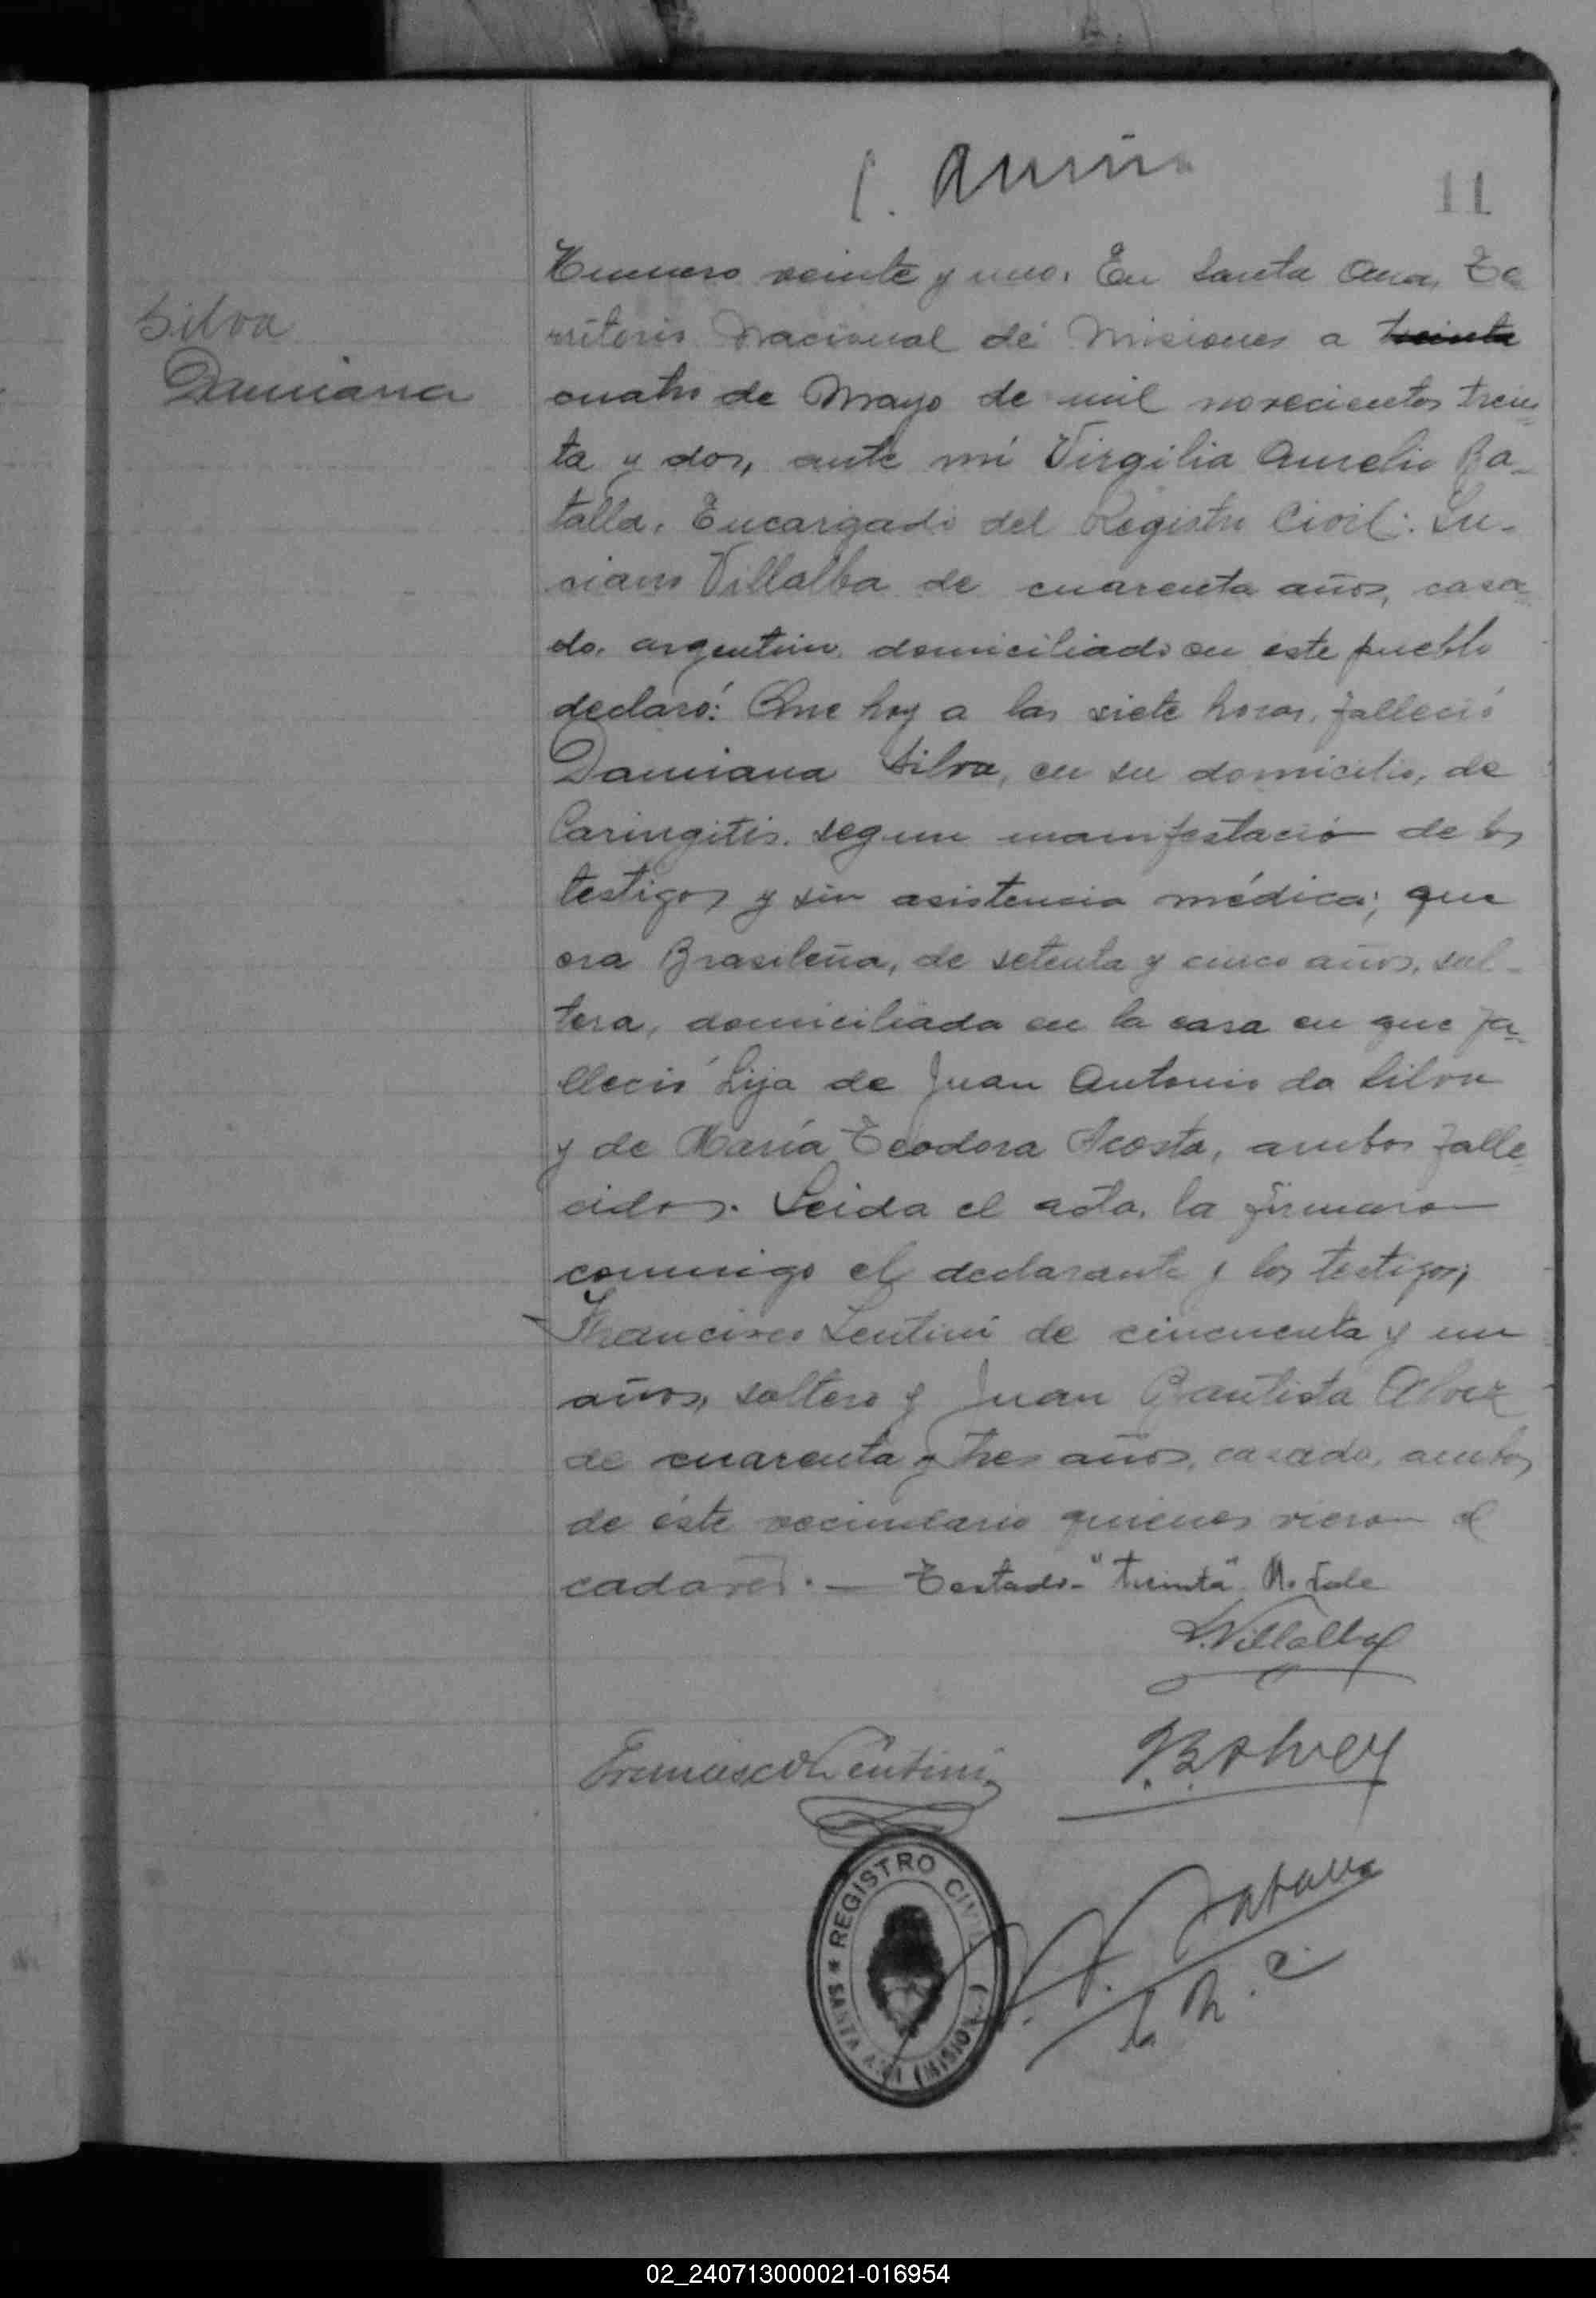 11
Numero veinte y uno. En Santa Ana, Te
rritorio Nacional de Misiones a treinta
cuatro de Mayo de mil novecientos trein
ta y dos, ante mí Virgilia Aurelio Ba-
talla, Encargado del Registro Civil: Lu-
ciano Villalba de cuarenta años, casa
do, argentino, domiciliado en este pueblo
declaró: Que hoy a las siete horas, falleció
Silva
Damiana
Damiana Silva, en su domicilio, de
Laringitis, segun manifestació de los
testigos y sin asistencia médica; que
era Brasileña, de setenta y cinco años, sol-
tera, domiciliada en la casa en que fa-
lleció hija de Juan Antonio da Silva
y de María Teodora Acosta, ambos falle
cidos. Leida el acta, la firmaron
conmigo el declarante y los testigos;
Francisco Lentini de cincuenta y un
años, soltero y Juan Bautista Alvez
de cuarenta y tres años, casado, ambos
de éste vecindario quienes vieron el
cadaver. — Testado- "treinta" N. vale
L. Villalba
Francisco Lentini
J. B. Alvez
REGISTRO CIVIL
* SANTA ANA (MISIONES)
02_240713000021-016954